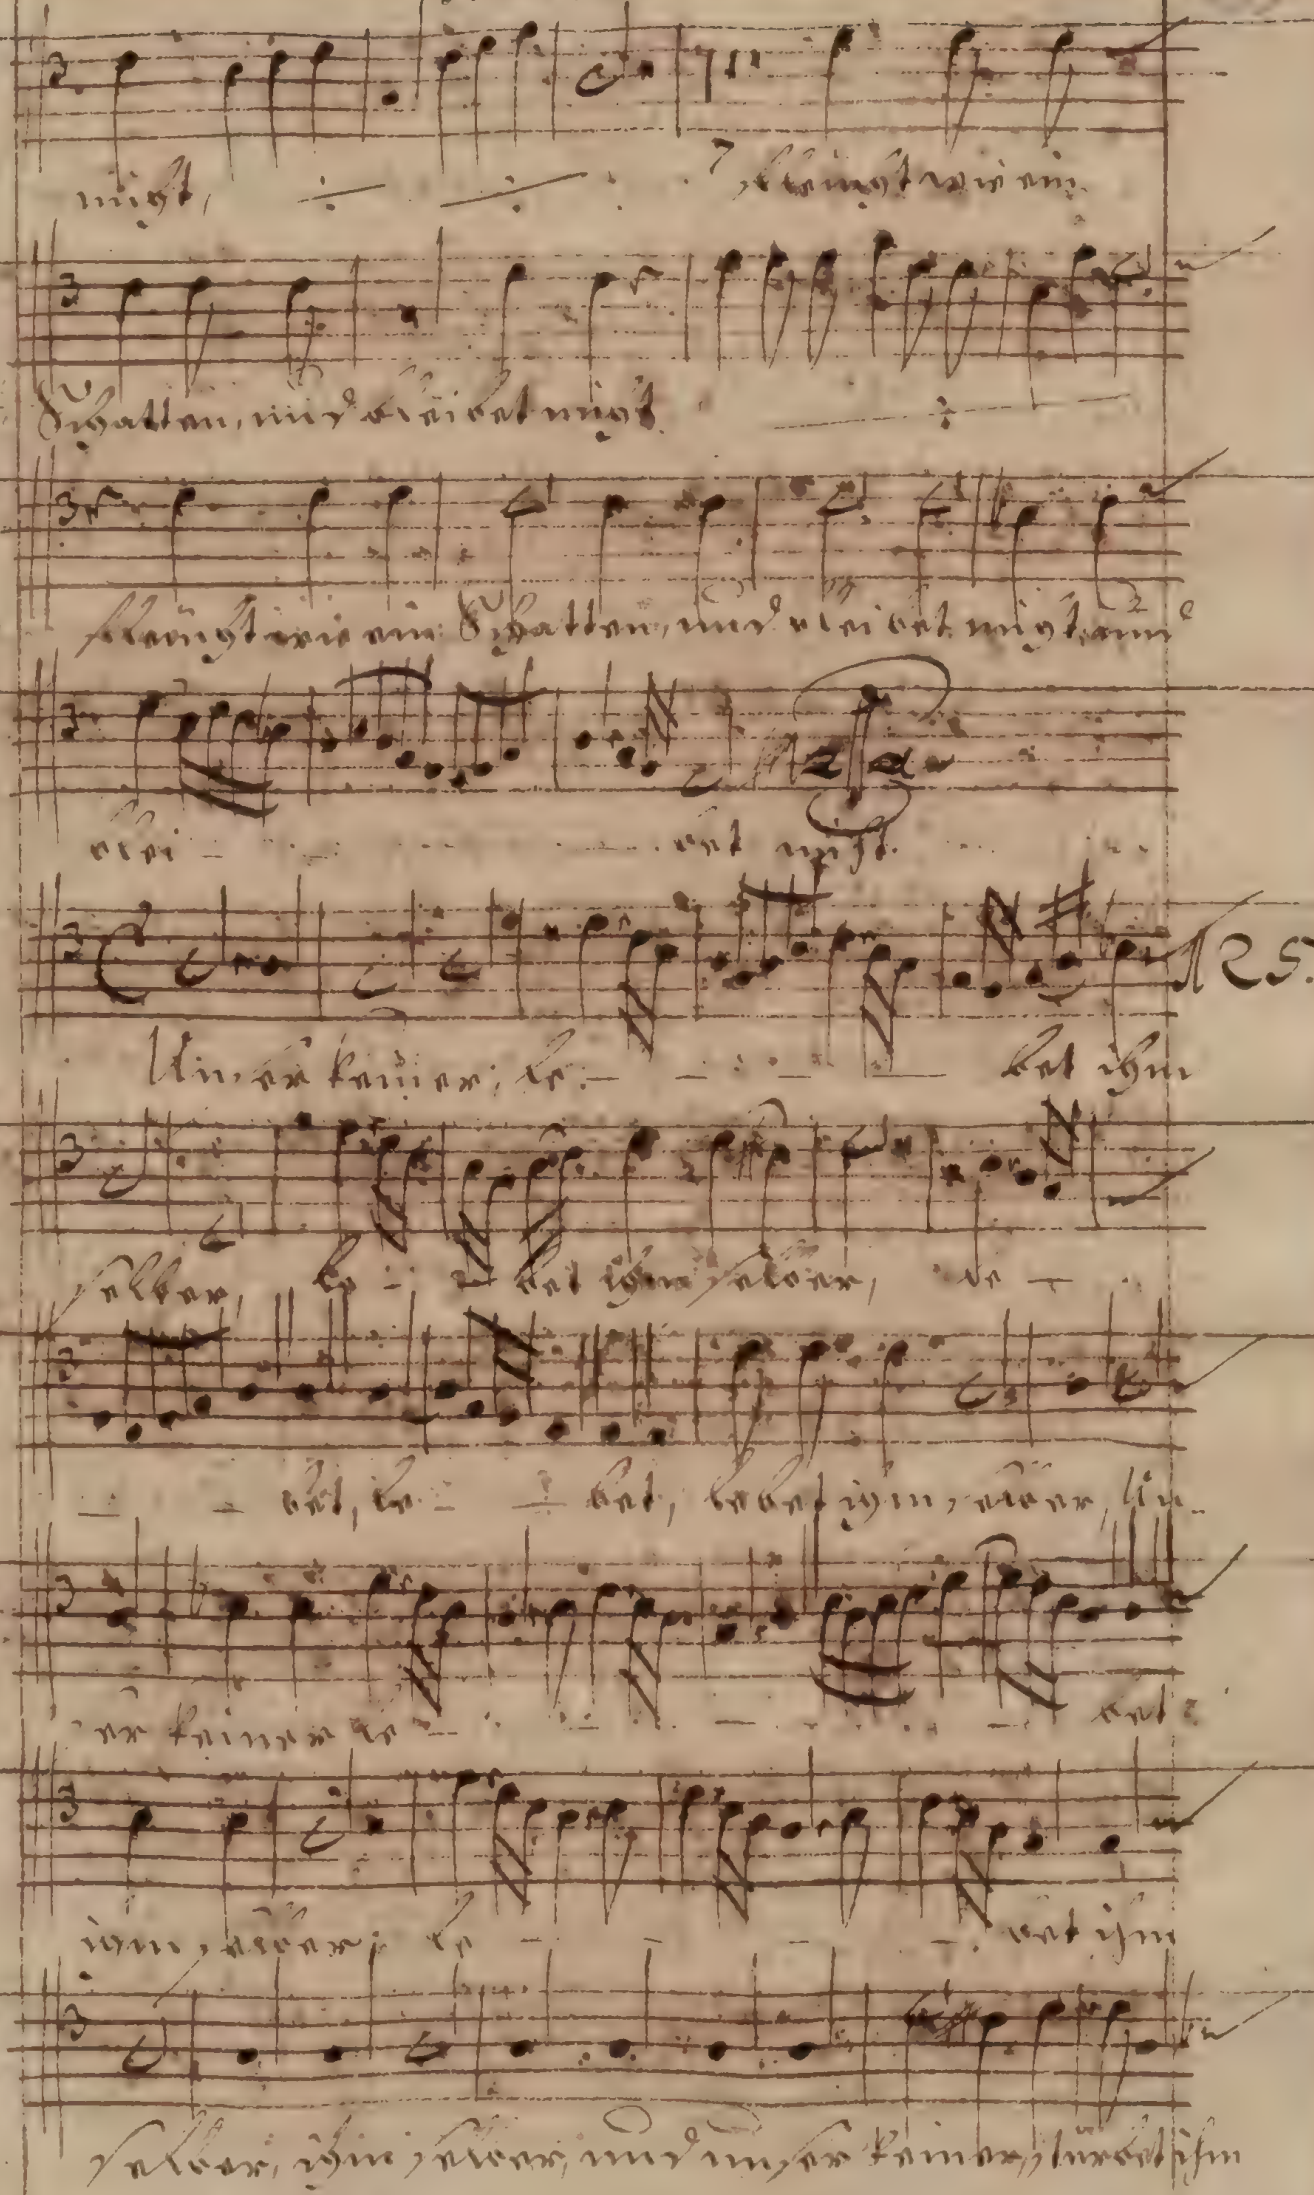 nicht, fleugt wie ein
Schatten, und bleibet nicht
fleugt wie ein Schatten, und bleibet nicht, und
blei - - - bet nicht.
125.
Unser keiner, le - - - bet ihm
selber, le - - bet ihm selber, le -
- - bet, le - - bet, lebet ihm selber, Un-
ser keiner le - - - - bet
ihm selber, le - - - - bet ihm
selber, ihm selber, und unser keiner stürbet ihm